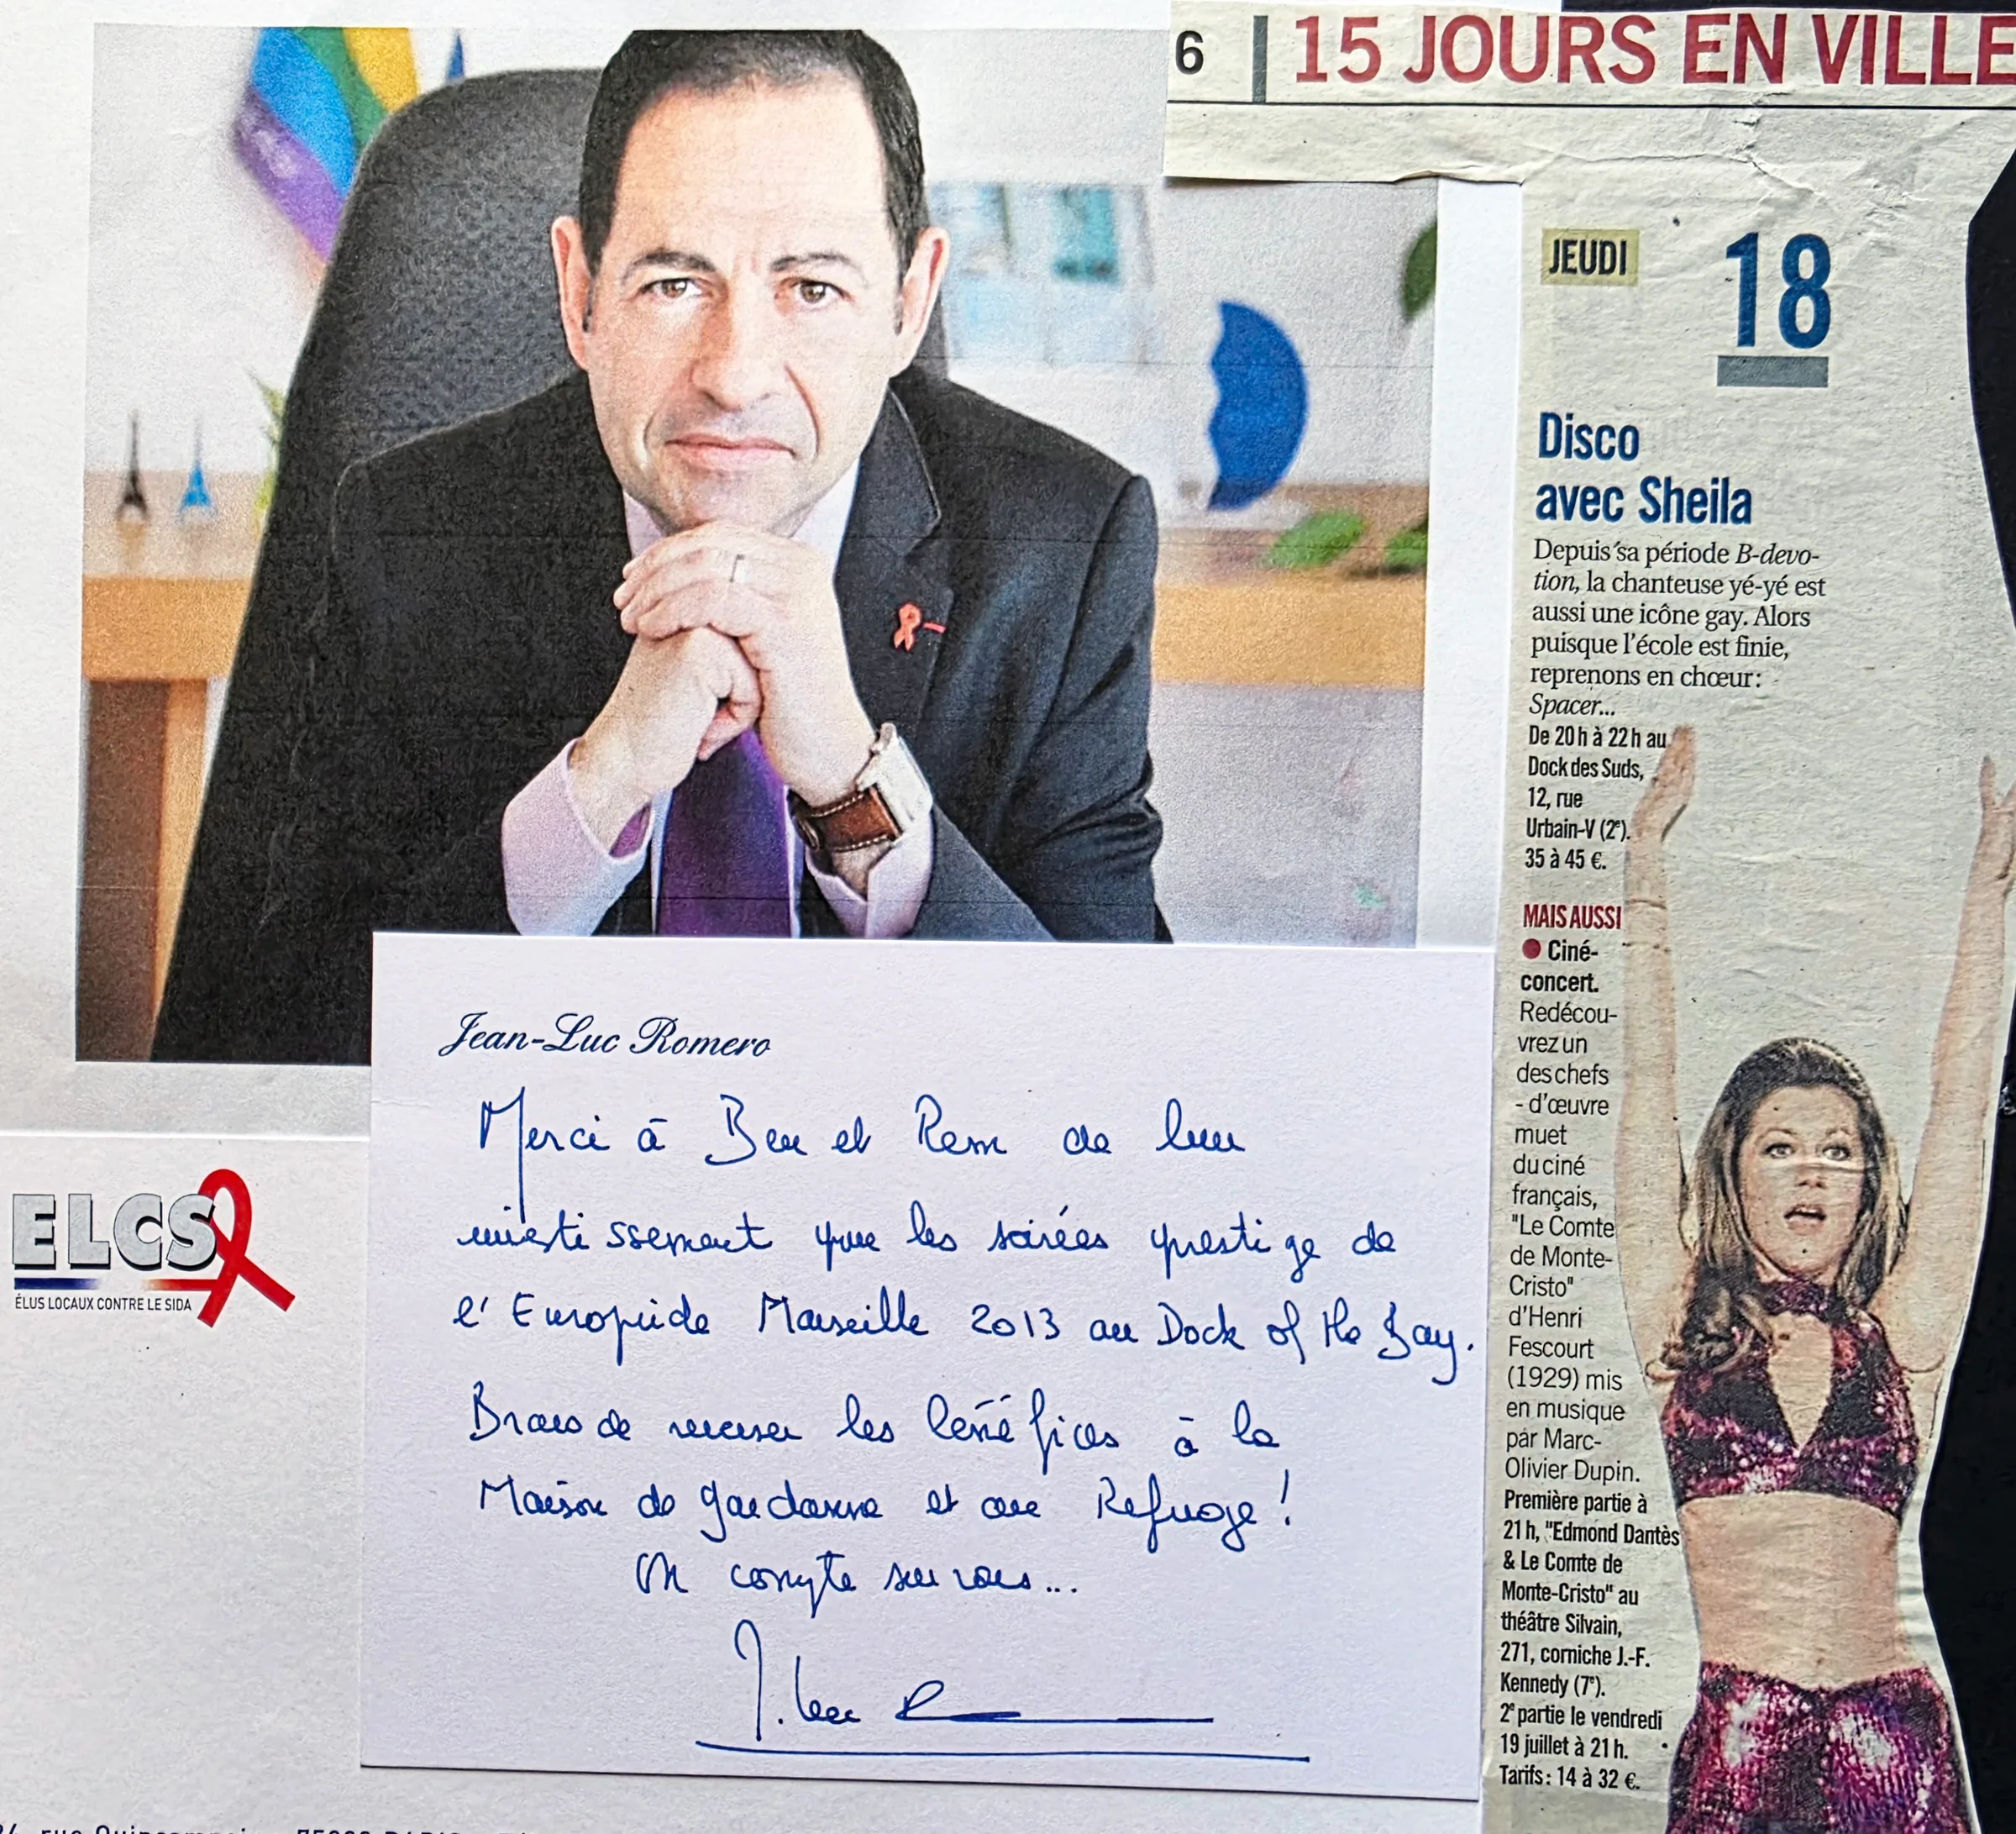 6 | 15 JOURS EN VILLE
JEUDI 18
Disco
avec Sheila
Depuis sa période B-devo-
tion, la chanteuse yé-yé est
aussi une icône gay. Alors
puisque l'école est finie,
reprenons en chœur :
Spacer...
De 20 h à 22 h au
Dock des Suds,
12, rue
Urbain-V (2e).
35 à 45 €.
MAIS AUSSI
● Ciné-
concert.
Redécou-
vrez un
des chefs
- d'œuvre
muet
du ciné
français,
"Le Comte
de Monte-
Cristo"
d'Henri
Fescourt
(1929) mis
en musique
par Marc-
Olivier Dupin.
Première partie à
21 h, "Edmond Dantès
& Le Comte de
Monte-Cristo" au
théâtre Silvain,
271, corniche J.-F.
Kennedy (7e).
2e partie le vendredi
19 juillet à 21 h.
Tarifs : 14 à 32 €.
Jean-Luc Romero
Merci à Ben et Rem de leur
investissement pour les soirées prestige de
l'Europride Marseille 2013 au Dock of the Bay.
Bravo de verser les bénéfices à la
Maison de Gardanne et au Refuge !
On compte sur vous...
J. Luc R
ELCS
ÉLUS LOCAUX CONTRE LE SIDA
rue Quincampoix